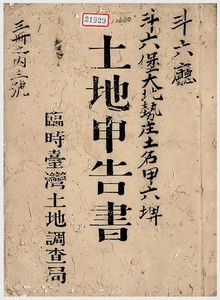 斗六廳
斗六堡大北勢庄土名甲六埤
土地申告書
臨時臺灣土地調查局
三冊之內三號
21929